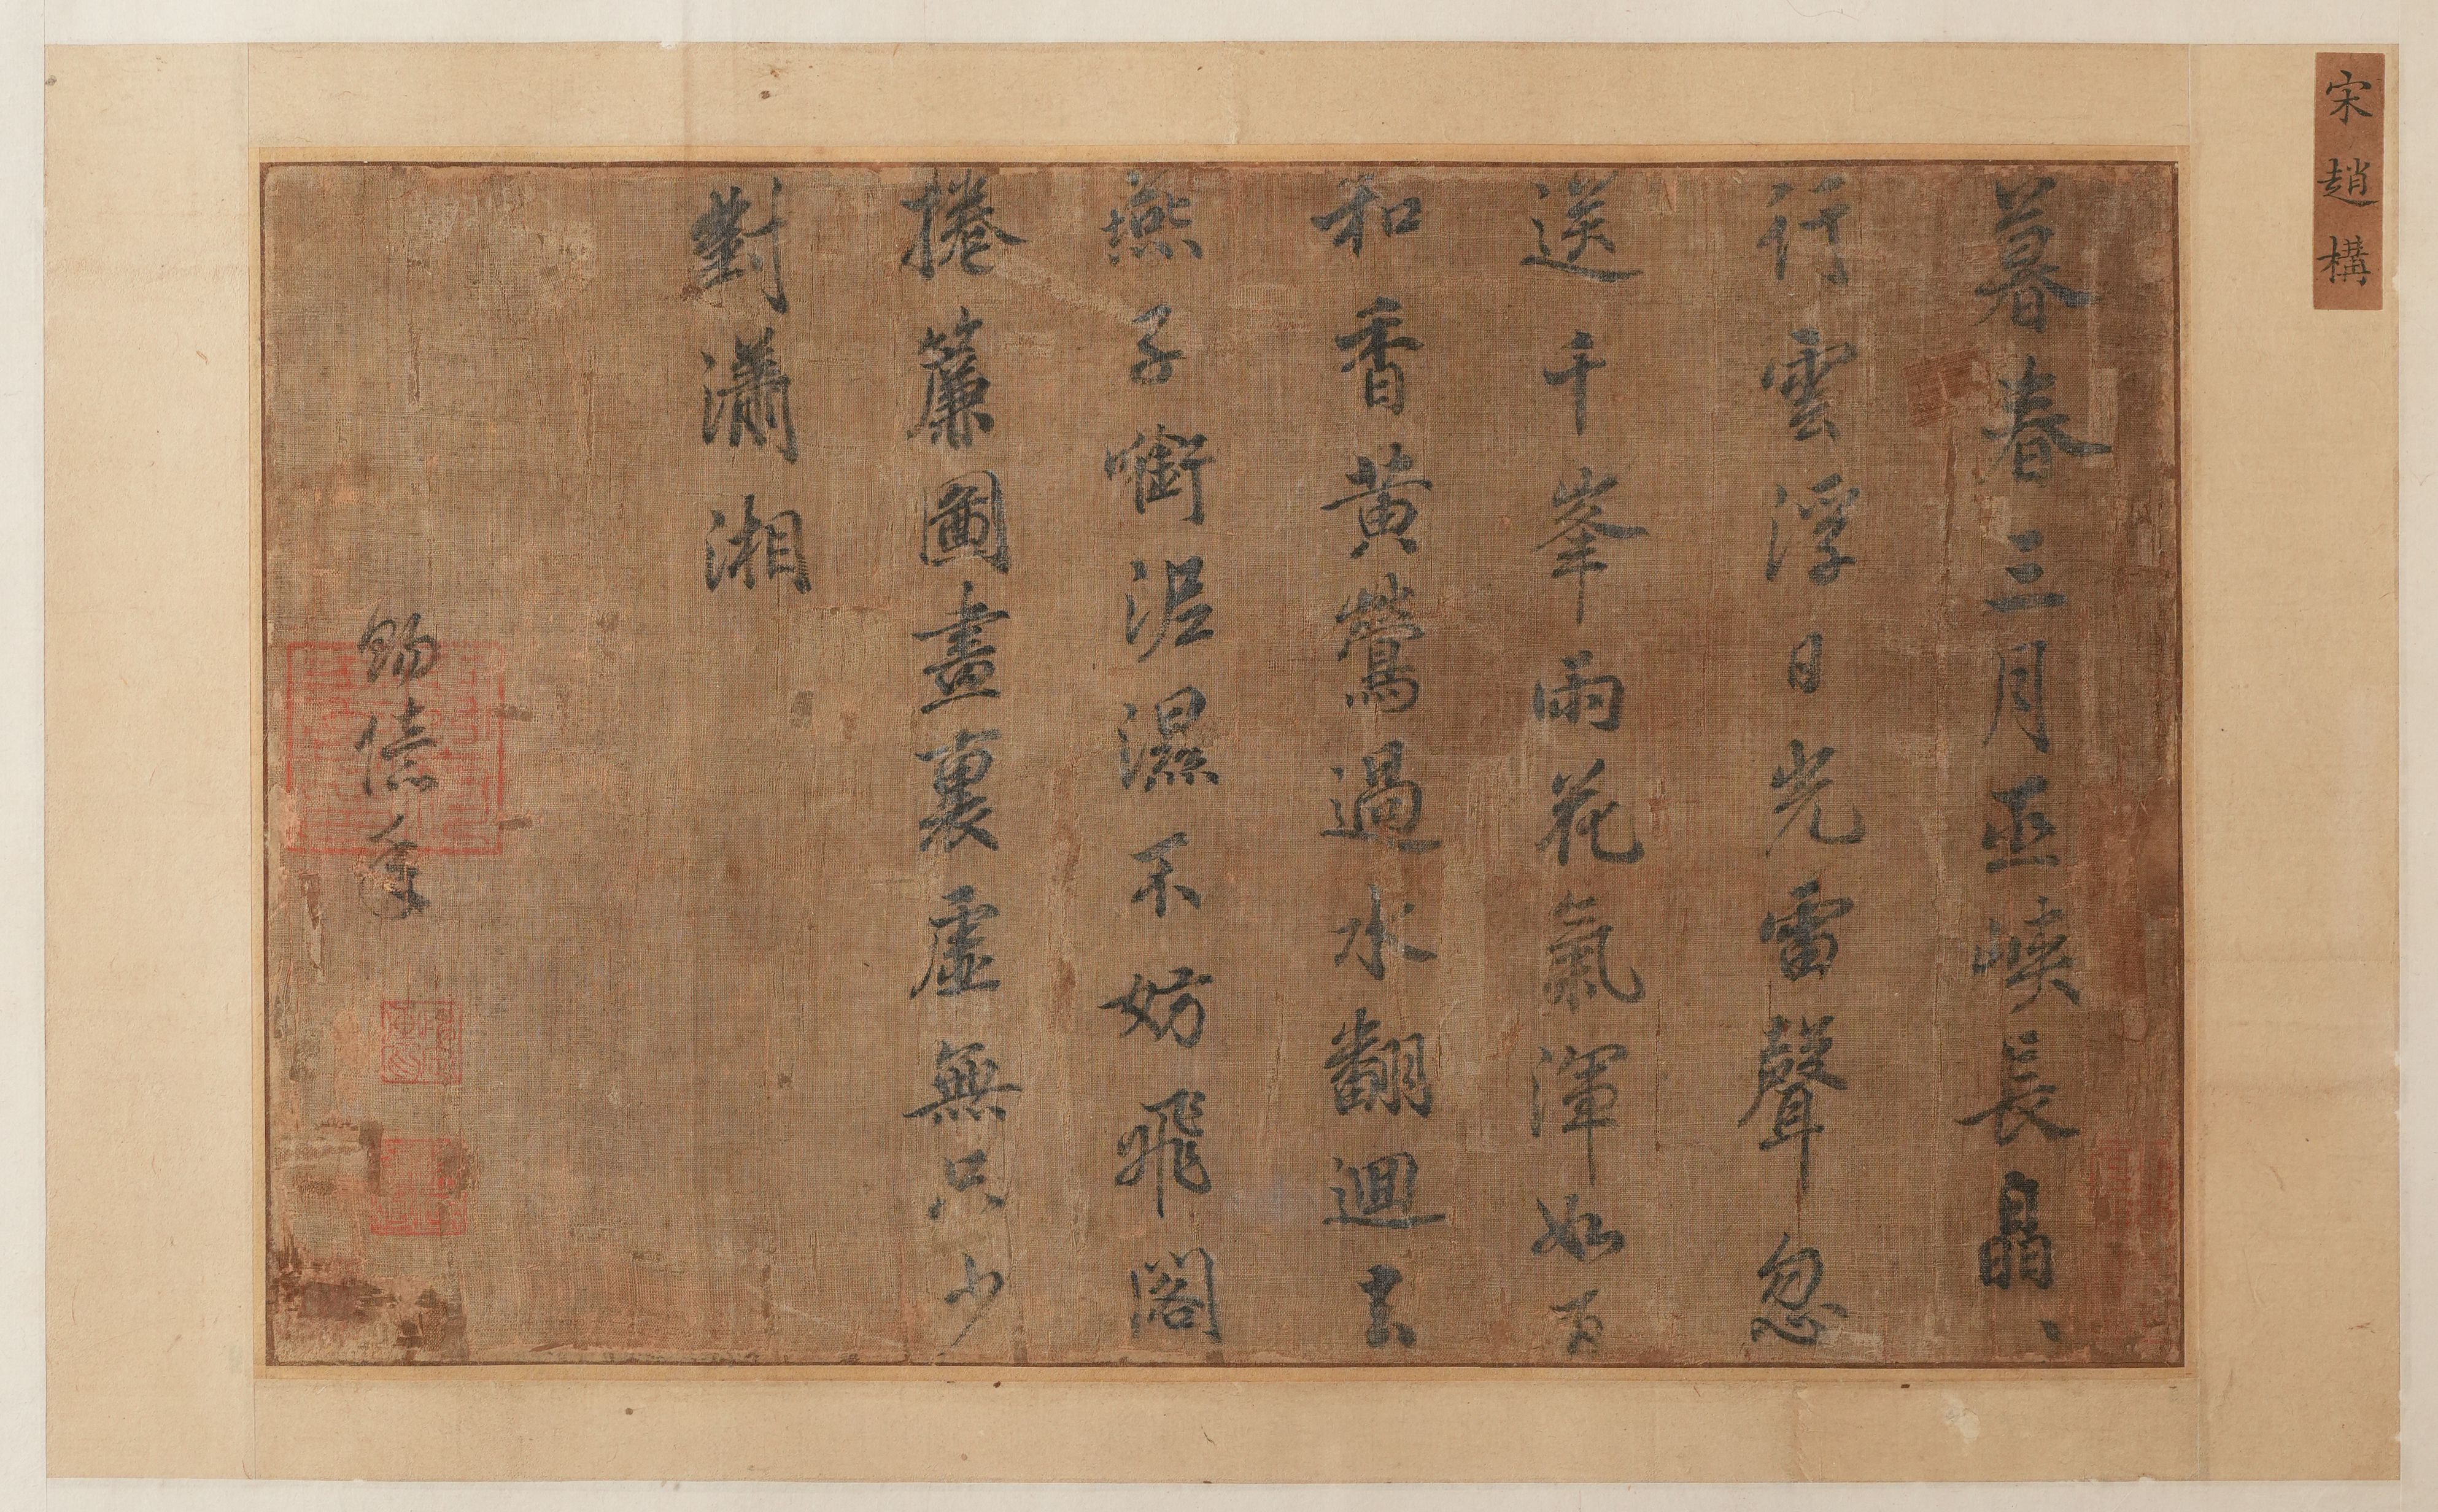 宋趙構
暮春三月巫峽長皛、
行雲浮日光雷聲忽
送千峯雨花氣渾如百
和香黄鶯過水翻迴去
燕子銜泥濕不妨飛閣
捲簾圖畫裏虛無只少
對瀟湘
賜億年